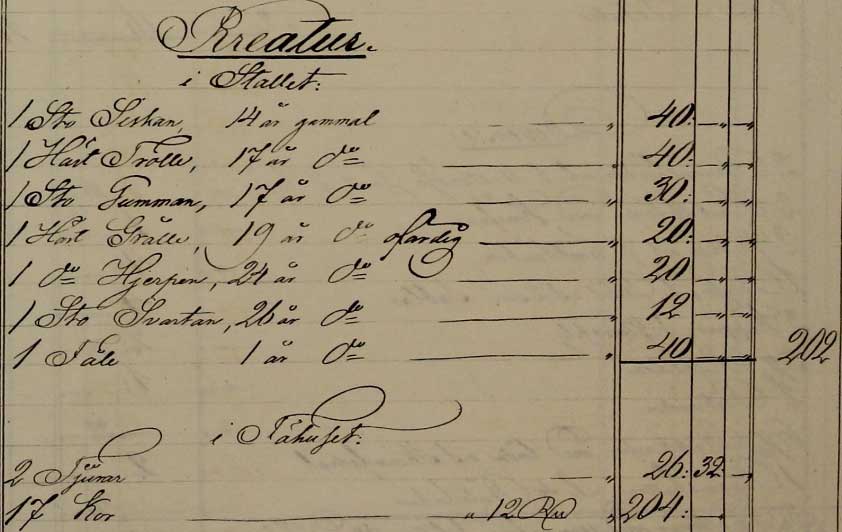 Kreatur.
i Stallet:
1 Sto Siskan, 14 år gammal — „ 40: „ „
1 Häst Trolle, 17 år do — „ 40: „ „
1 Sto Gumman, 17 år do — „ 30: „ „
1 Häst Grålle, 19 år do ofärdig — „ 20: „ „
1 do Hjerpen, 24 år do — „ 20 „ „
1 Sto Svartan, 26 år do — „ 12 „ „
1 Fåle 1 år do — „ 40 „ „ 202
i Fähuset:
2 Tjurar — „ 26: 32: „
17 Kor — „ 12 Rd 204: „